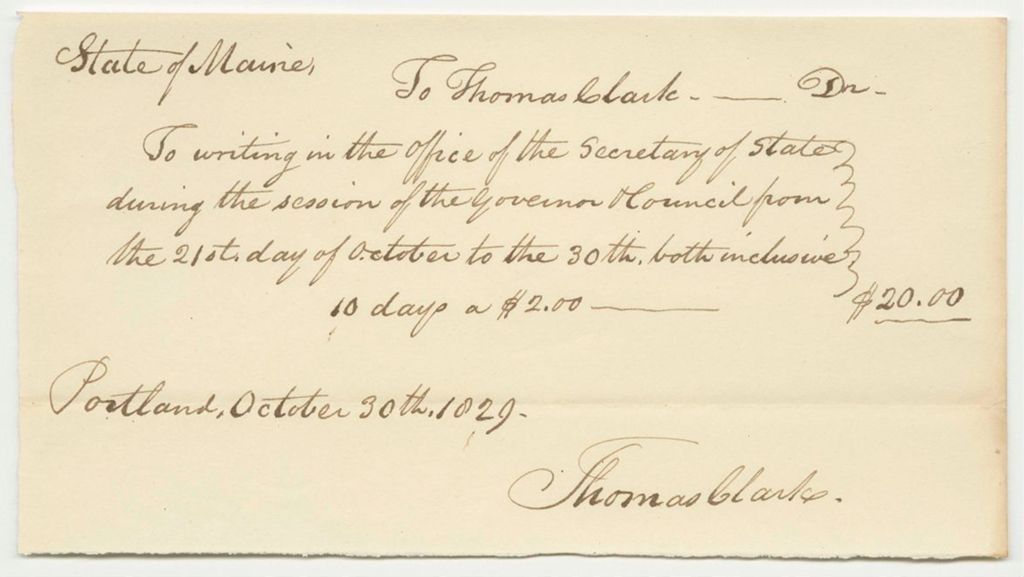 State of Maine,
To Thomas Clark - — Dr -
To writing in the office of the Secretary of State
during the session of the Governor & Council from
the 21st. day of October to the 30th. both inclusive
10 days a $2.00 — $20.00
Portland, October 30th. 1829-
Thomas Clark.